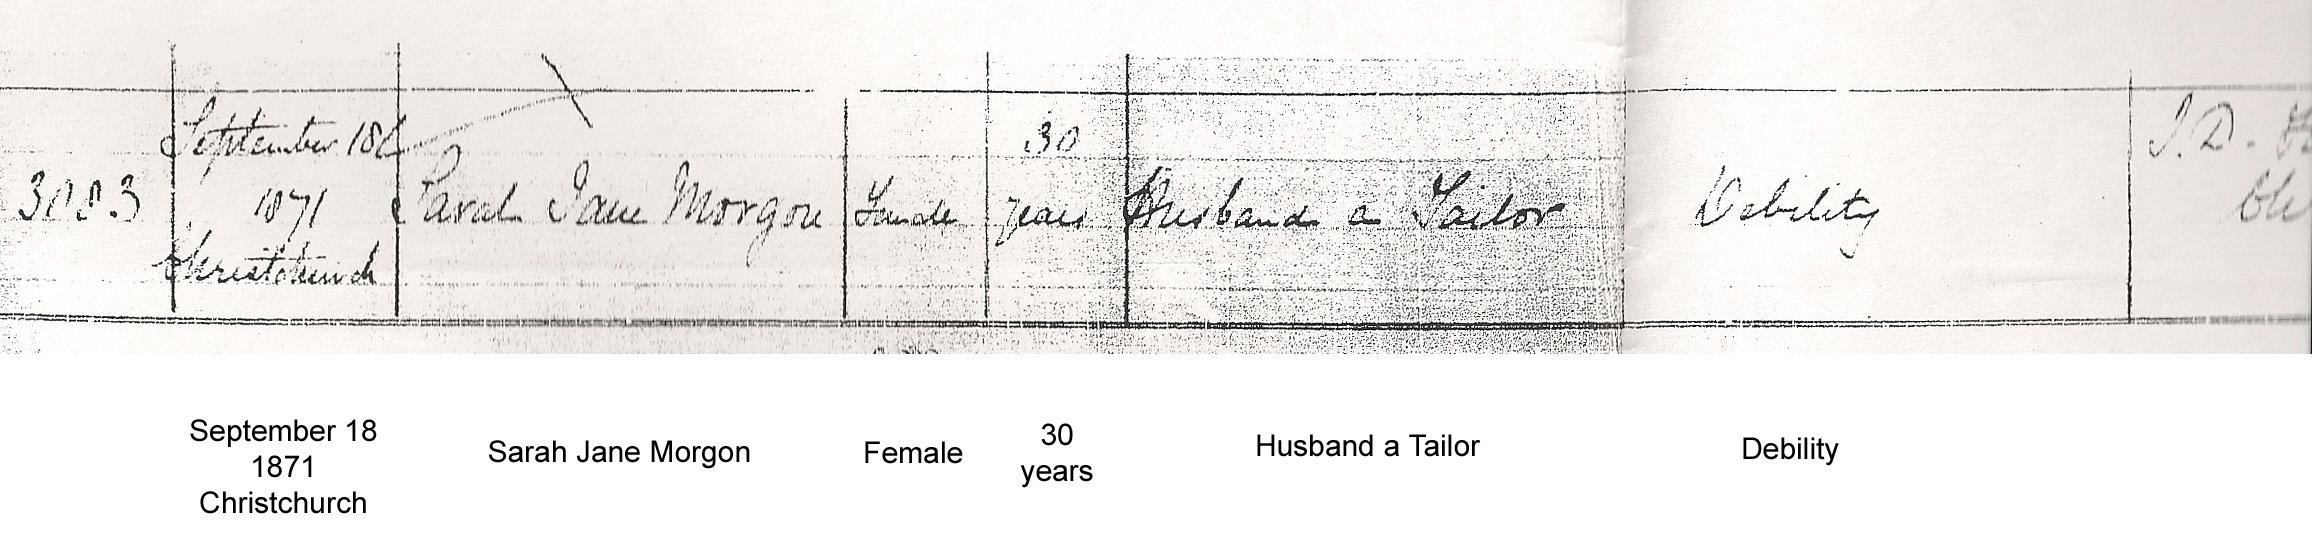 September 18th
3003
1871
Christchurch
Sarah Jane Morgon
Female
30
years
Husband a Tailor
Debility
J. D.
September 18
1871
Christchurch
Sarah Jane Morgon
Female
30
years
Husband a Tailor
Debility